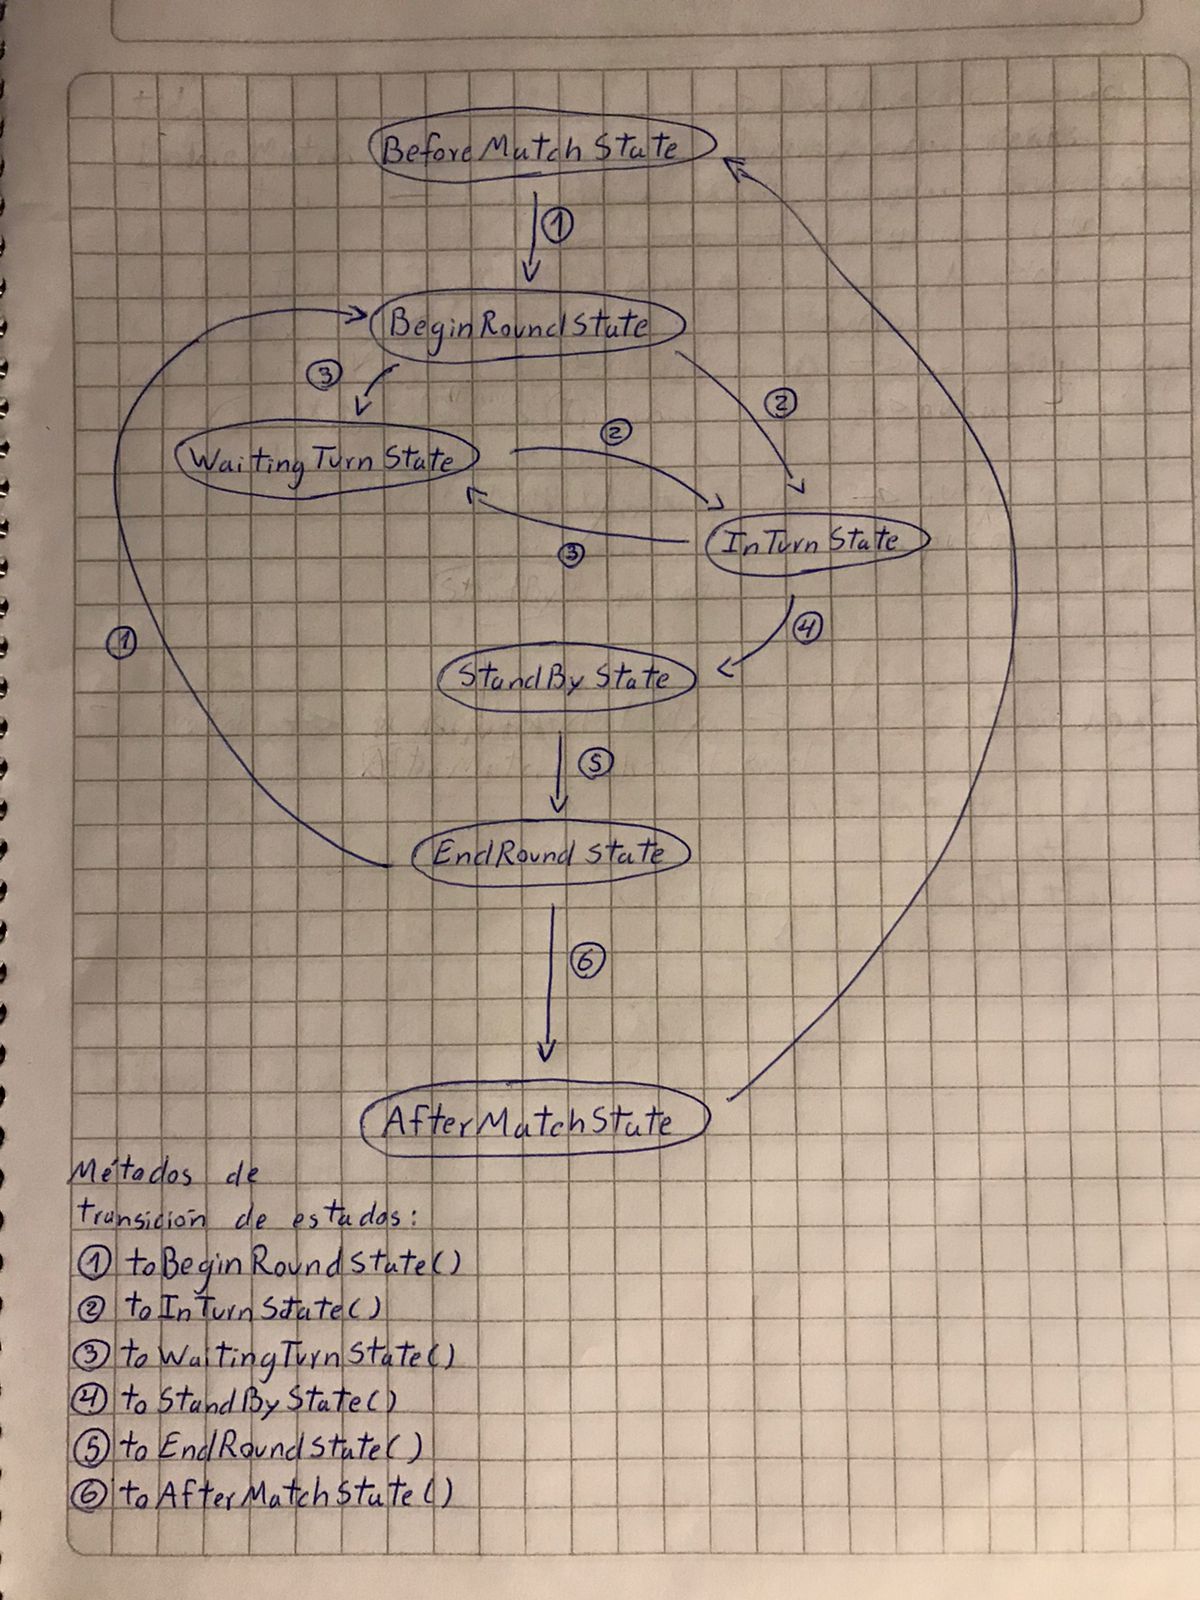 BeforeMatchState
①
BeginRoundState
③
②
WaitingTurnState
②
③
InTurnState
①
④
StandByState
⑤
EndRoundState
⑥
AfterMatchState
Métodos de
transición de estados:
① toBeginRoundState()
② toInTurnState()
③ toWaitingTurnState()
④ toStandByState()
⑤ toEndRoundState()
⑥ toAfterMatchState()